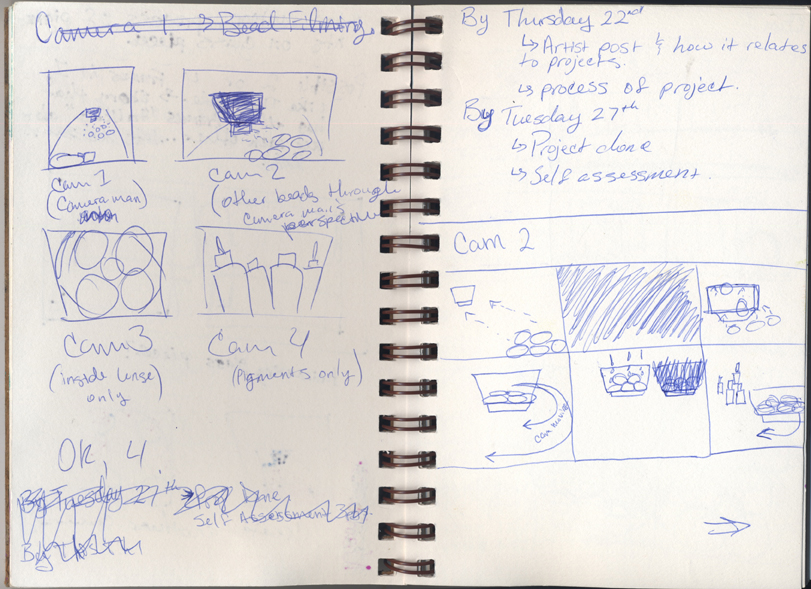 Camera 1 → Bead Filming.
Cam 1
(Camera man)
Cam 2
(other beads through
camera man's
perspective
Cam 3
(inside lense)
only
Cam 4
(pigments only)
OK, 4
By Tuesday 27th → Done
Self Assessment
By
By Thursday 22nd
↳ Artist post & how it relates
to projects.
↳ process of project.
By Tuesday 27th
↳ Project done
↳ Self assessment.
Cam 2
cam moving